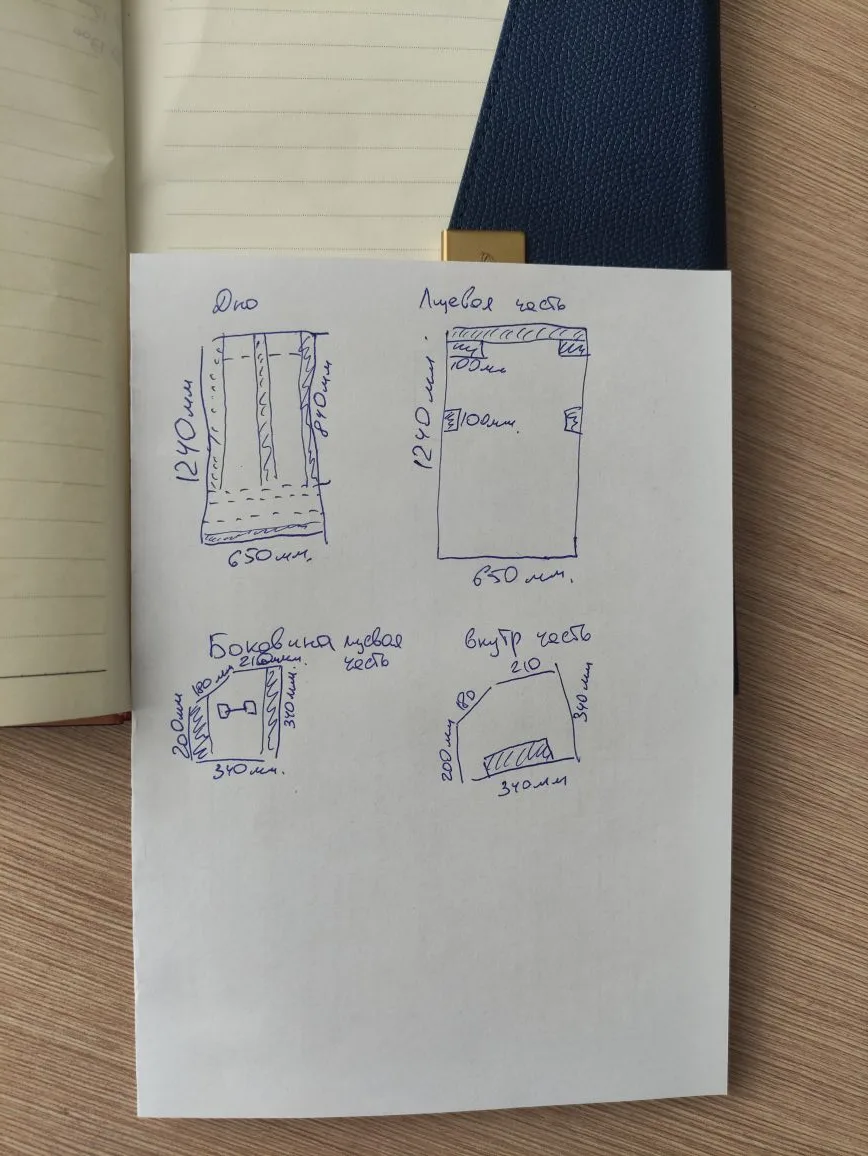 Дно
1240мм
840мм
650мм.
Лицевая часть
100мм
100мм.
1240мм.
650мм.
Боковина лицевая
часть
210мм.
180мм
200мм
340мм.
340мм.
внутр часть
210
180
200мм
340мм
340мм